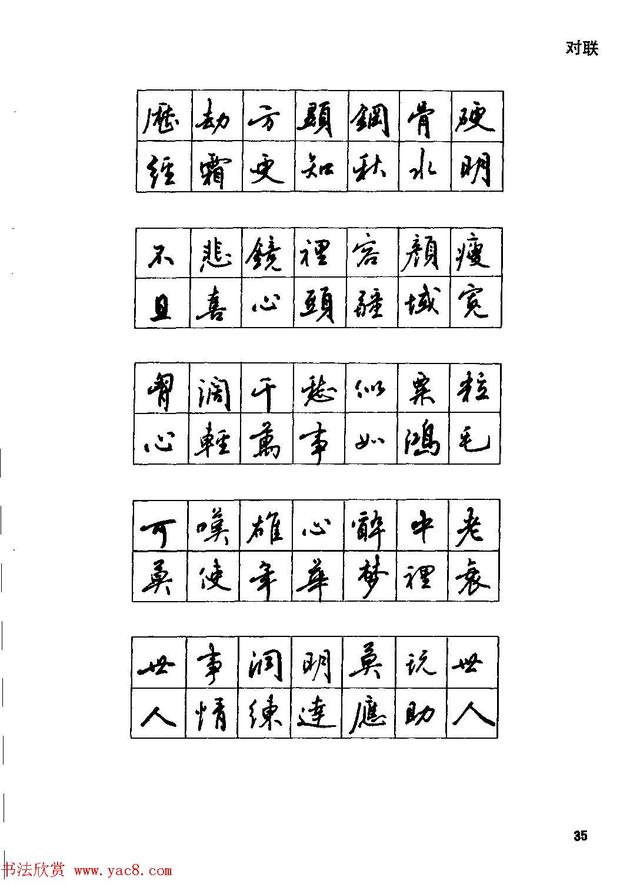 对联
歷劫方顯鋼骨硬
經霜更知秋水明
不悲鏡裡容顏瘦
且喜心頭疆域寬
胷濶千愁似粟粒
心輕萬事如鴻毛
可嘆雄心醉中老
莫使年華梦裡衰
世事洞明莫说世
人情練達應助人
35
书法欣赏 www.yac8.com